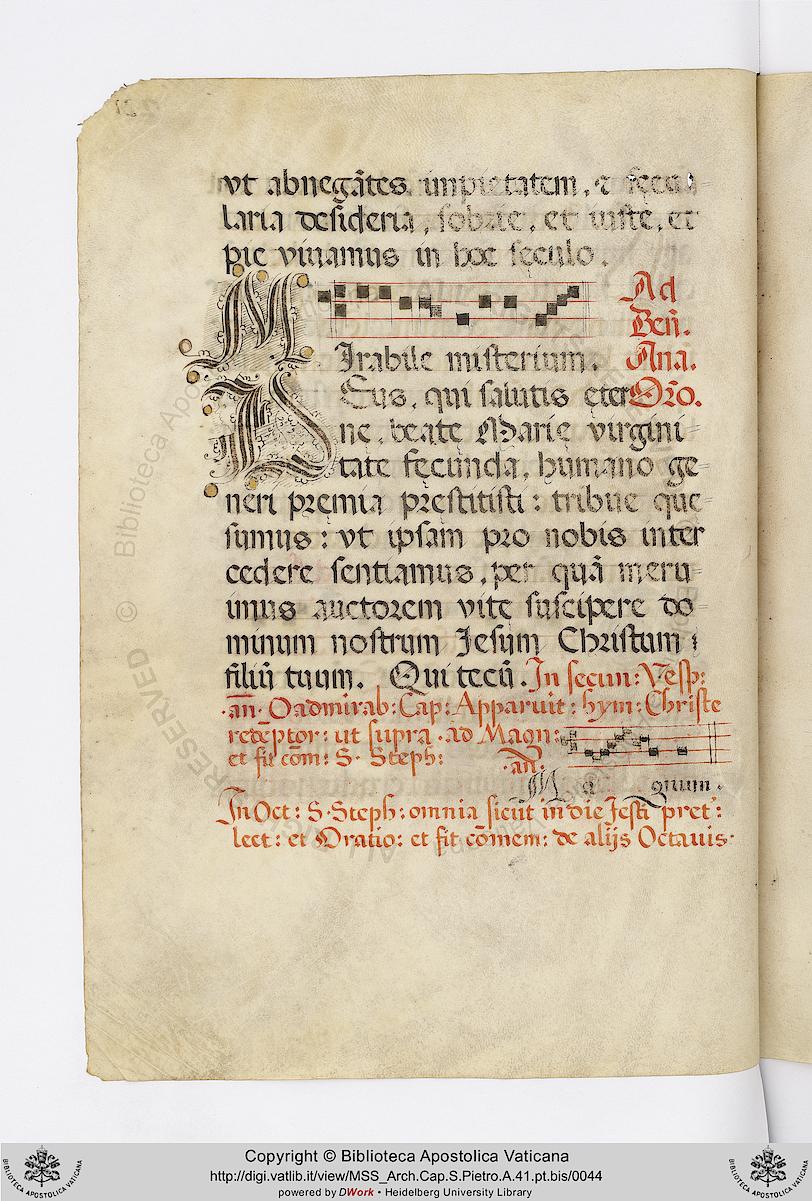 vt abnegãtes impietatem, ⁊ secu
laria desideria, sobrie, et iuste, et
pie viuamus in hoc seculo.
Ad
Beñ.
Mirabile misterium. Ana.
DEus, qui salutis eter Orõ.
ne, beate Marie virgini
tate fecunda, humano ge
neri premia prestitisti: tribue que
sumus: vt ipsam pro nobis inter
cedere sentiamus, per quã meru
imus auctorem vite suscipere do
minum nostrum Jesum Christum
filiũ tuum. Qui tecũ. In secun: Vesp:
añ. O admirab: Cap: Apparuit: hym: Christe
redẽptor: ut supra. ad Magn:
et fit cõm: S. Steph: añ.
Magnum.
In Oct: S. Steph: omnia sicut in die festi pret:
lect: et Oratio: et fit cõmem: de alijs Octauis.
© Biblioteca Apostolica
RESERVED
Copyright © Biblioteca Apostolica Vaticana
http://digi.vatlib.it/view/MSS_Arch.Cap.S.Pietro.A.41.pt.bis/0044
powered by DWork • Heidelberg University Library
BIBLIOTECA APOSTOLICA VATICANA
BIBLIOTECA APOSTOLICA VATICANA